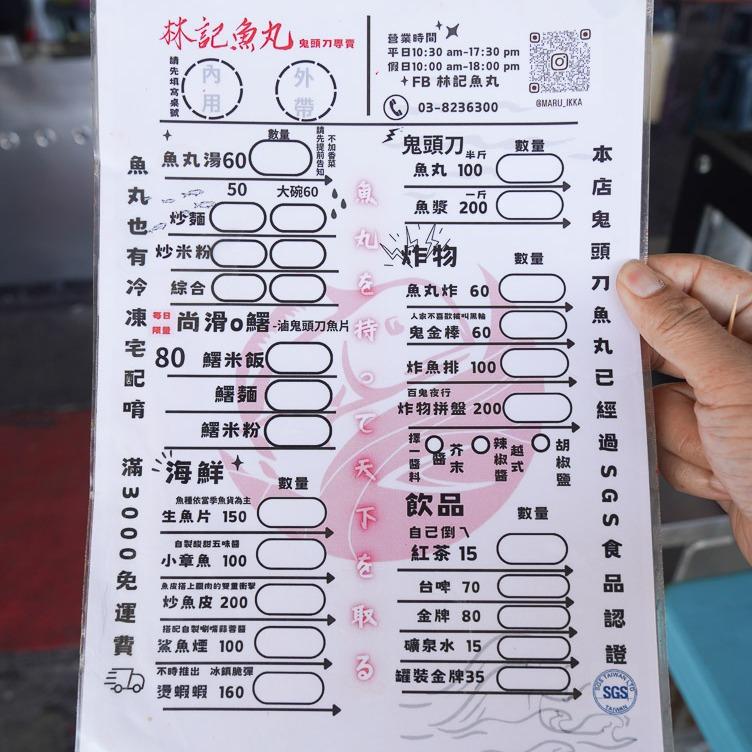 林記魚丸 鬼頭刀專賣
請先填寫桌號
內用
外帶
營業時間
平日10:30 am-17:30 pm
假日10:00 am-18:00 pm
FB 林記魚丸
03-8236300
@MARU_IKKA
魚丸也有冷凍宅配唷
滿3000免運費
數量
魚丸湯60
不加香菜請先提前告知
50 大碗60
炒麵
炒米粉
綜合
每日限量
尚滑o鱰-滷鬼頭刀魚片
80 鱰米飯
鱰麵
鱰米粉
海鮮
數量
魚種依當季魚貨為主
生魚片 150
自製酸甜五味醬
小章魚 100
魚皮搭上腸肉的雙重衝擊
炒魚皮 200
搭配自製唰嘴蒜蓉醬
鯊魚煙 100
不時推出 冰鎮脆彈
燙蝦蝦 160
魚丸を持って天下を取る
鬼頭刀
數量
半斤
魚丸 100
一斤
魚漿 200
炸物
數量
魚丸炸 60
人家不喜歡被叫黑輪
鬼金棒 60
炸魚排 100
百鬼夜行
炸物拼盤 200
擇一醬料
醬
芥末
辣椒醬
越式
胡椒鹽
飲品
數量
自己倒
紅茶 15
台啤 70
金牌 80
礦泉水 15
罐裝金牌35
本店鬼頭刀魚丸已經過SGS食品認證
SGS TAIWAN LTD
SGS
TAIWAN